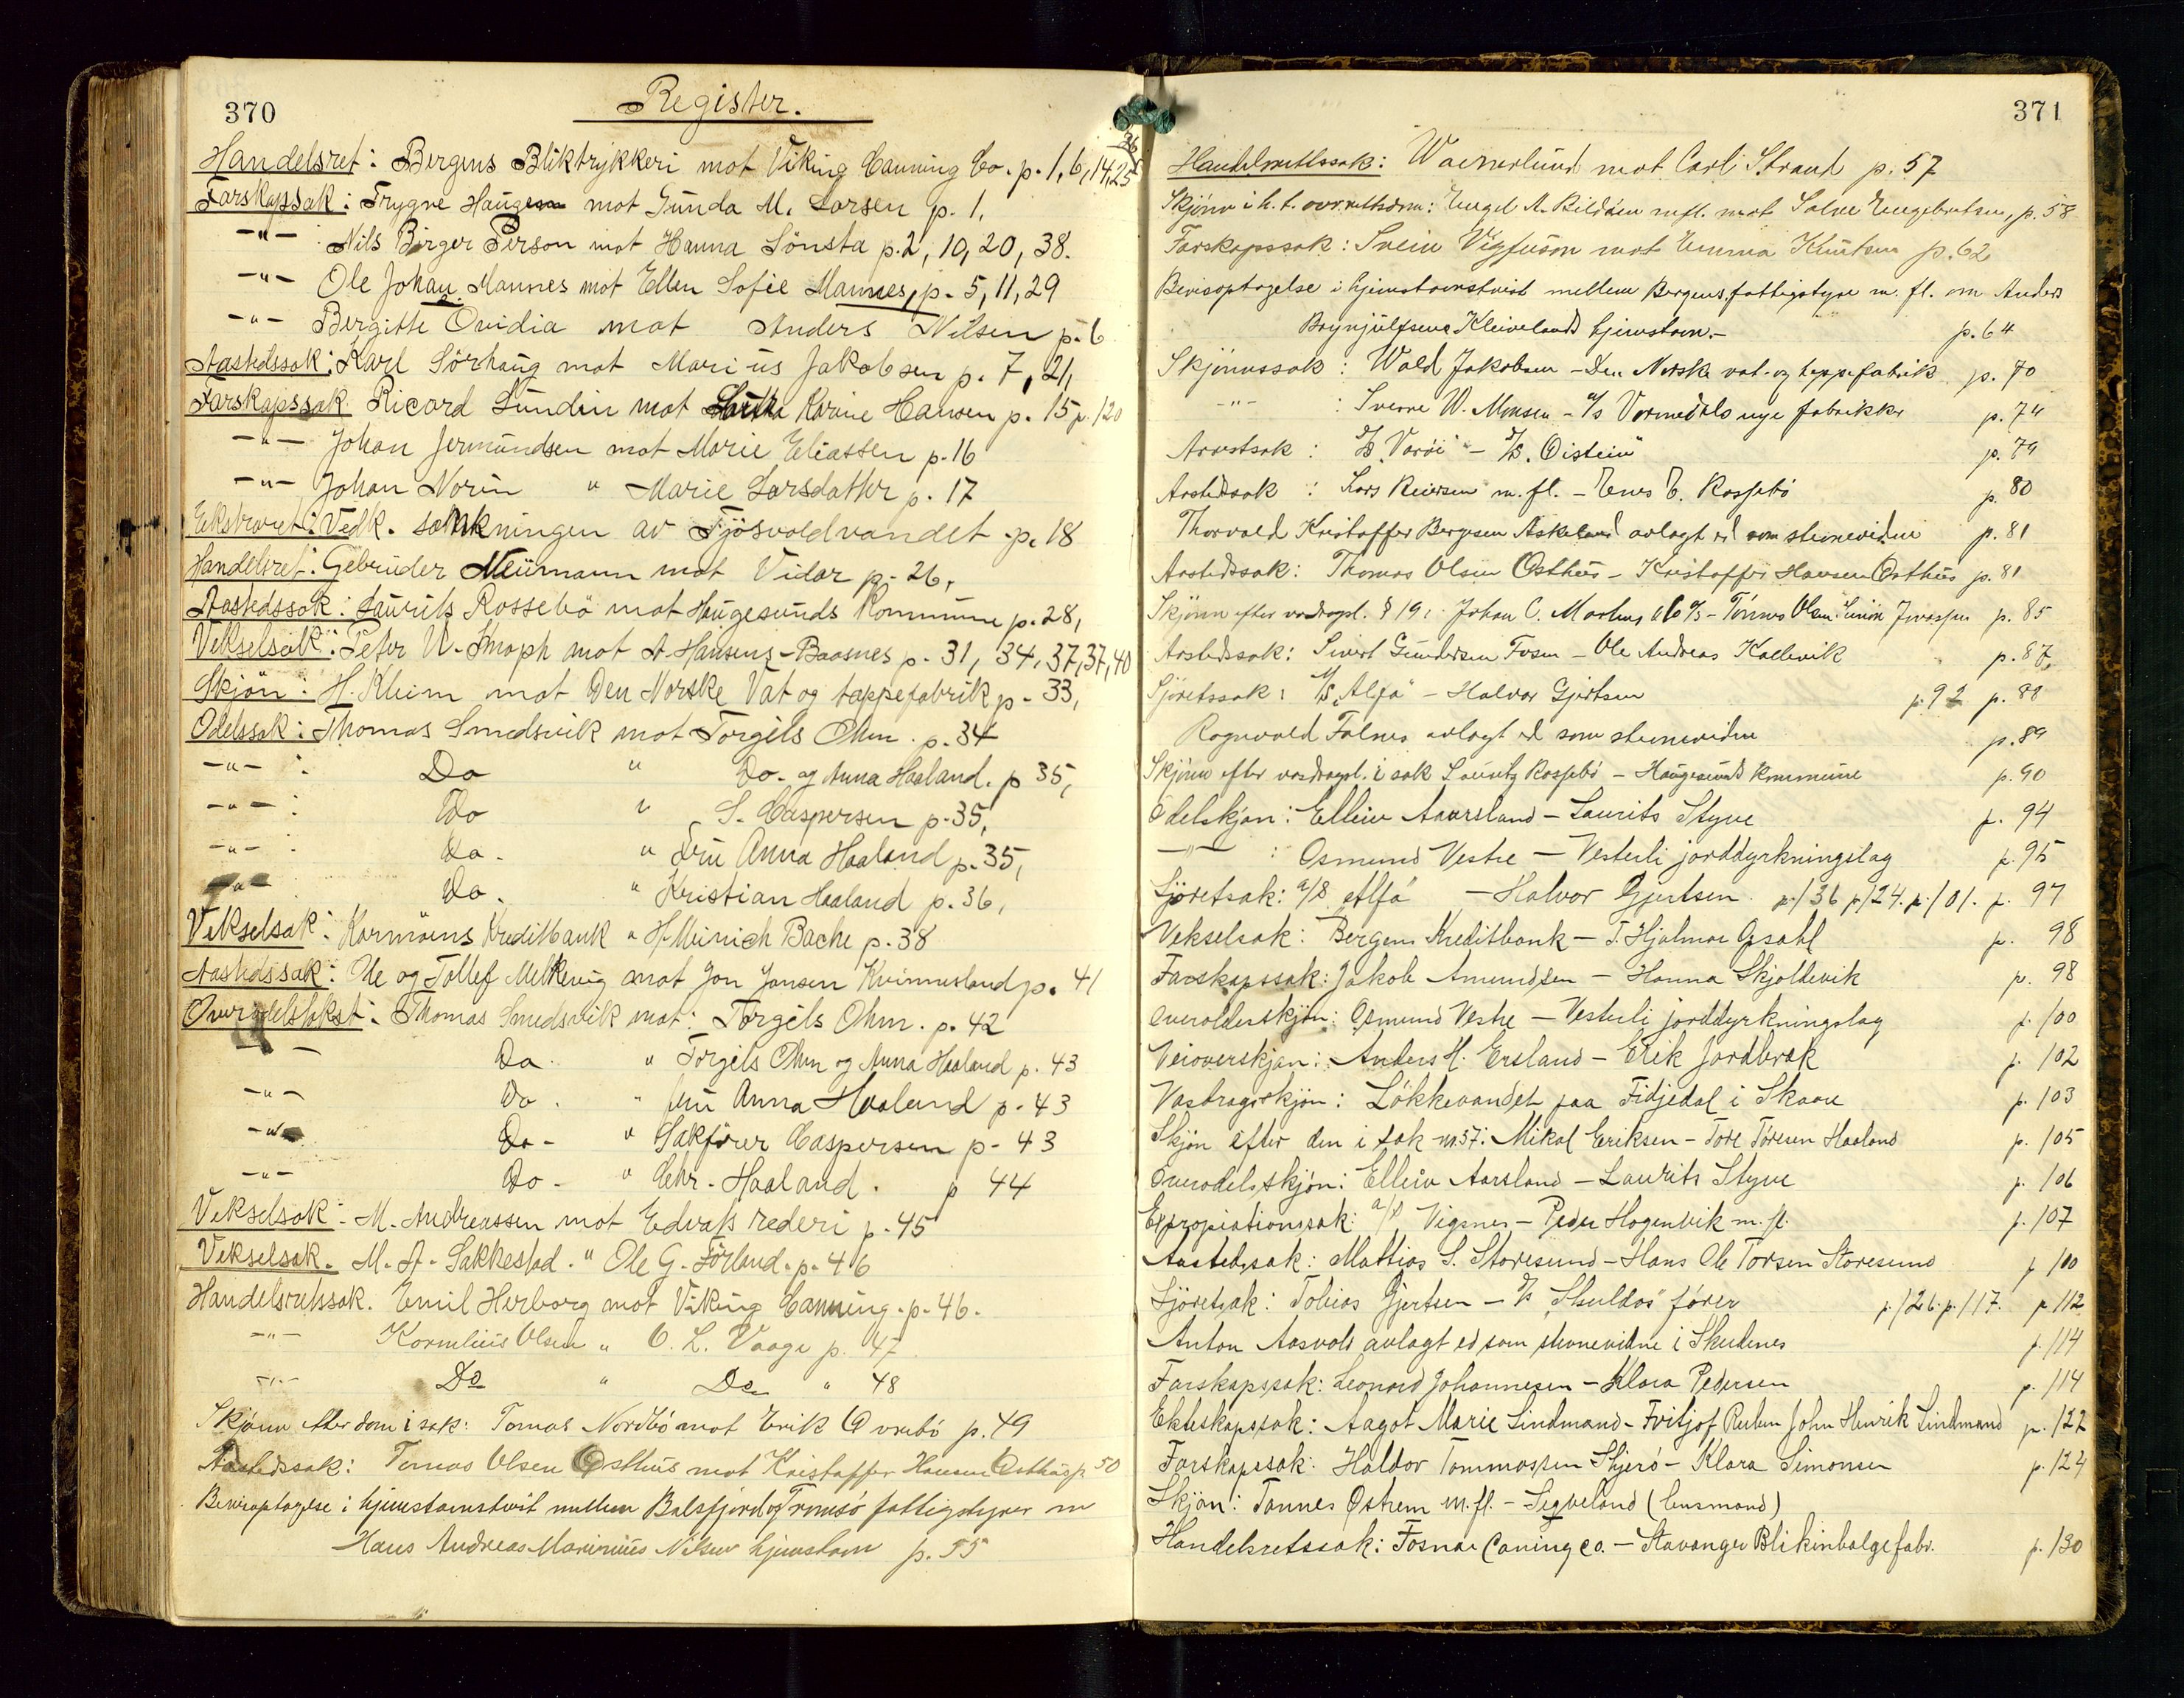 370
Register.
Handelsret: Bergens Bliktrykkeri mot Viking Canning Co. p. 1, 6, 14, 25 26
Farskapssak: Trygve Haugen mot Gunda M. Larsen p. 1.
-"- : Nils Birger Person mot Hanna Lönsta p. 2, 10, 20, 38.
-"- Ole Johan Mannes mot Ellen Sofie Mannes, p. 5, 11, 29
-"- Bergitte Ovidia mot Anders Nilsen p. 6
Aastedssak: Karl Sörhaug mot Marius Jakobsen p. 7, 21,
Farskapssak Ricard Lundin mot Karine Hansen p. 15 p. 120
-"- Johan Jermundsen mot Marie Eliassen p. 16
-"- Johan Norin " Marie Larsdatter p. 17
Ekstraret: Vedk. sænkningen av Tjösvoldvandet p. 18
Handelsret: Gebrüder Neumann mot Vidar p. 26,
Aastedssak: Laurits Rossebö mot Haugesunds Kommune p. 28,
Vekselsak: Peter W. Knoph mot A. Hansens-Baasnes p. 31, 34, 37, 37, 40
Skjön: H. Kleim mot Den Norske Vat og tappefabrik p. 33,
Odelssak: Thomas Smedsvik mot Torgils Ohm. p. 34
-"- : Do " Do. og Anna Haaland. p 35,
-"- : Do " S. Caspersen p. 35,
-"- : Do. " Fru Anna Haaland p. 35,
-"- : Do. " Kristian Haaland p. 36,
Vekselsak: Karmöens Kreditbank " H. Meinich Bache p. 38
Aastedssak: Ole og Tollef Melkevig mot Jon Jonsen Kvinnesland p. 41
Overodelstakst: Thomas Smedsvik mot: Torgils Ohm. p. 42
-"- Do. " Torgils Ohm og Anna Haaland p. 43
-"- Do. " fru Anna Haaland p. 43
-"- Do - " Sakförer Caspersen p - 43
-"- Do - " Chr. Haaland. p 44
Vekselsak: M. Andreassen mot Edvats rederi p. 45
Vekselsak. M. A. Sakkestad. " Ole G. Förland. p. 46
Handelsretssak. Emil Herborg mot Viking Canning. p. 46.
-"- Kornelius Olsen " O. L. Vaage p. 47
-"- Do " Do " 48
Skjønn efter dom i sak: Tomas Nordbö mot Erik Øvrebö p. 49
Aastedssak: Tomas Olsen Østhus mot Kristoffer Hansen Østhus p. 50
Bevisoptagelse i hjemstavnstvist mellem Balsfjord og Tromsö fattigstyrer om
Hans Andreas Marinius Nilsen hjemstavn p. 55
371
Handelsrettssak: Wacnerlund mot Carl Strand p. 57
Skjönn i h. t. overrettsdom: Engel N. Bildöen mfl. mot Salve Engebretsen, p. 58
Farskapssak: Svein Vigfuson mot Emma Knutsen p. 62
Bevisoptagelse i hjemstavnstvist mellem Bergens fattigstyre m. fl. om Anders
Brynjulfsens Kleivelands hjemstavn. - p. 64
Skjönnssak: Wald Jakobsen - Den Norske vat- og teppefabrik p. 70
-"- : Sverre W. Monsen - A/s Vormedals nye fabrikker p. 74
Arrestsak: D/S "Varöi" - D/S. "Oistein" p. 79
Aastedssak: Lars Reiersen m. fl. - Enes E. Rossebö p. 80
Thorvald Kristoffer Bergesen Askeland avlagt ed som stevnevidne p. 81
Aastedssak: Thomas Olsen Østhus - Kristoffer Hansen Østhus p. 81
Skjönn efter vasdragsl. § 19: Johan C. Martens & Co A/s - Tönnes Olsen, Simon Jonassen p. 85
Aastedssak: Sivert Gundersen Fosen - Ole Andreas Kallevik p. 87,
Sjöretssak: A/S "Alfa" - Halvor Gjertsen p. 92 p. 88
Ragnvald Falnes avlagt ed som stevnevidne p. 89
Skjönn efter vasdragsl. i sak Lauritz Rossebö - Haugesunds kommune p. 90
Odelskjön: Elleiv Aarsland - Laurits Styve p. 94
-"- : Osmund Vestre - Vesterli jorddyrkningslag p. 95
Sjöretsak: a/s Alfa - Halvor Gjertsen. p. 136 p. 124. p. 101. p. 97
Vekselsak: Bergens Kreditbank - T. Hjalmar Gsahl p. 98
Farskapssak: Jakob Amundsen - Hanna Skjoldevik p. 98
Overoldesskjön: Osmund Vestre - Vesterli jorddyrkningslag p. 100
Veioverskjön: Anders H. Ersland - Erik Jordbræk p. 102
Vasdragsskjön: Løkkevandet paa Fidjedal i Skaare p. 103
Skjön efter dom i sak nr. 37: Mikal Eriksen - Tore Töresen Haaland p. 105
Overodelsskjön: Elleiv Aarsland - Laurits Styve p. 106
Expropiationssak: a/s Vigsnes - Peder Hogenvik m. fl. p. 107
Aastedssak: Mattias S. Storesund - Hans Ole Torsen Storesund p 110
Sjöretsak: Tobias Gjertsen - D/s "Skuldas" förer p. 126. p. 117. p. 112
Anton Aasvold avlagt ed som stevnevidne i Skudenes p. 114
Farskapssak: Leonard Johannesen - Klara Pedersen p. 114
Ekteskapssak: Aagot Marie Lindmand - Fritjof Reuben John Henrik Lindmand p. 122
Farskapssak: Haldor Tommassen Skjerö - Klara Simonsen p. 124
Skjön: Tonnes Østrem m. fl. - Segveland (lensmand)
Handelsretssak: Fosnar Caning co. - Stavanger Blikinbalgefabr. p. 130